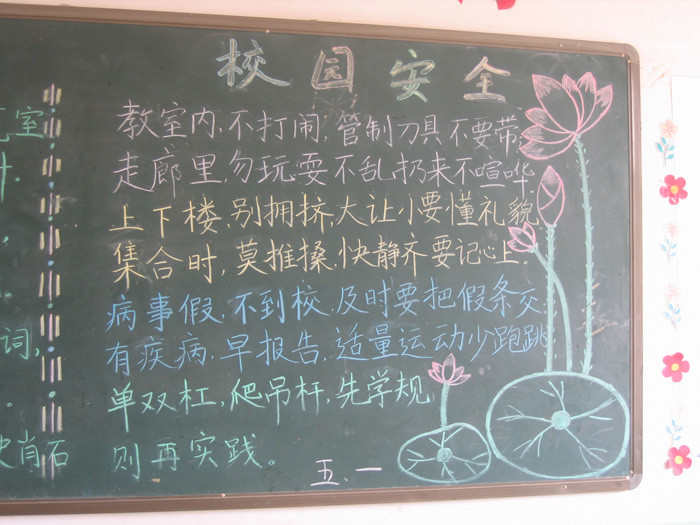 校园安全
教室内,不打闹,管制刀具不要带,
走廊里,勿玩耍不乱扔来不喧哗.
上下楼,别拥挤,大让小要懂礼貌.
集合时,莫推搡.快静齐要记心上.
病事假.不到校.及时要把假条交.
有疾病.早报告.适量运动少跑跳
单双杠,爬吊杆.先学规
则再实践。
五.一
室
词,
肖石